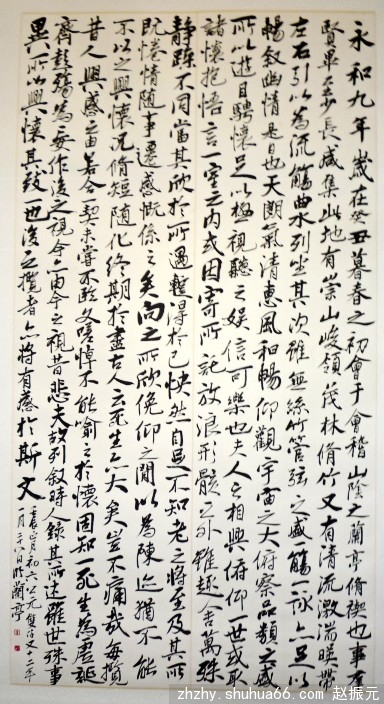 永和九年歲在癸丑暮春之初會于會稽山陰之蘭亭脩禊也事羣
賢畢至少長咸集此地有崇山峻領茂林脩竹又有清流激湍暎帶
左右引以為流觴曲水列坐其次雖無絲竹管弦之盛觴一詠亦足以
暢叙幽情是日也天朗氣清惠風和暢仰觀宇宙之大俯察品類之盛
所以遊目騁懷足以極視聽之娛信可樂也夫人之相與俯仰一世或取
諸懷抱悟言一室之內或因寄所託放浪形骸之外雖趣舍萬殊
静躁不同當其欣於所遇蹔得於己快然自足不知老之將至及其所
既惓情隨事遷感慨係之矣向之所欣俛仰之閒以為陳迹猶不能
不以之興懷況脩短隨化終期於盡古人云死生亦大矣豈不痛哉每攬
昔人興感之由若合一契未嘗不臨文嗟悼不能喻之於懷固知一死生為虛誕
齊彭殤為妄作後之視今亦由今之視昔悲夫故列叙時人錄其所述雖世殊事
異所以興懷其致一也後之攬者亦將有感於斯文
壬辰正月初六公元
一月二十八日臨蘭亭
zhzhy.shuhua66.com 赵振元